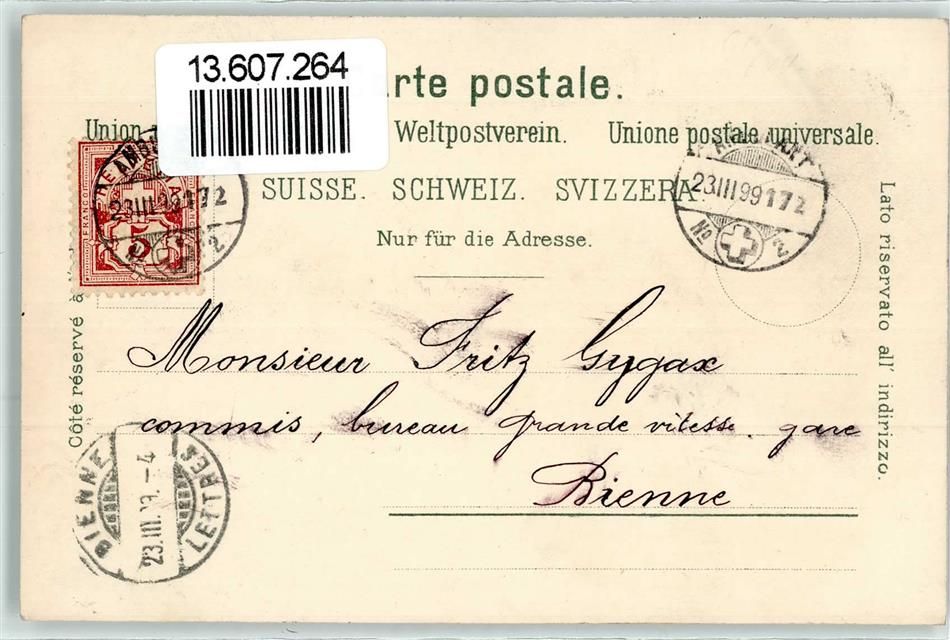 13.607.264
Carte postale.
Union Weltpostverein. Unione postale universale.
SUISSE. SCHWEIZ. SVIZZERA.
Nur für die Adresse.
FRANCO
5
23.III.99 172
No 2
23.III.99 172
No 2
Côté réservé à
Lato riservato all' indirizzo.
Monsieur Fritz Gygax
commis, bureau grande vitesse. gare
Bienne
BIENNE
23.III. -4
LETTRES